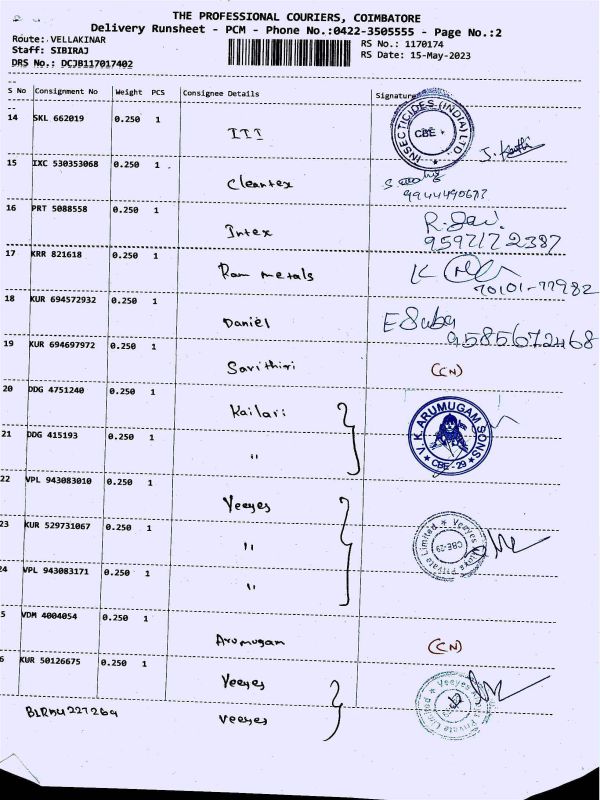 THE PROFESSIONAL COURIERS, COIMBATORE
Delivery Runsheet - PCM - Phone No.:0422-3505555 - Page No.:2
Route: VELLAKINAR RS No.: 1170174
Staff: SIBIRAJ RS Date: 15-May-2023
DRS No.: DCJB117017402
S No Consignment No Weight PCS Consignee Details Signature
14 SKL 662019 0.250 1
III INSECTICIDES (INDIA) LTD CBE
15 IXC 530353068 0.250 1
Cleantex
16 PRT 5088558 0.250 1
Intex R.
17 KRR 821618 0.250 1
Ram metals K
70101-77982
18 KUR 694572932 0.250 1
Daniel E Suba
9585672468
19 KUR 694697972 0.250 1
Savithiri (CN)
20 DDG 4751240 0.250 1
Kailari V.K. ARUMUGAM SONS CBE-29
21 DDG 415193 0.250 1
"
22 VPL 943083010 0.250 1
Veeyes
23 KUR 529731067 0.250 1
" Veeyes Private Limited CBE-29
24 VPL 943083171 0.250 1
"
5 VDM 4004054 0.250 1
Arumugam (CN)
6 KUR 50126675 0.250 1
Veeyes Veeyes Private Limited
Veeyes